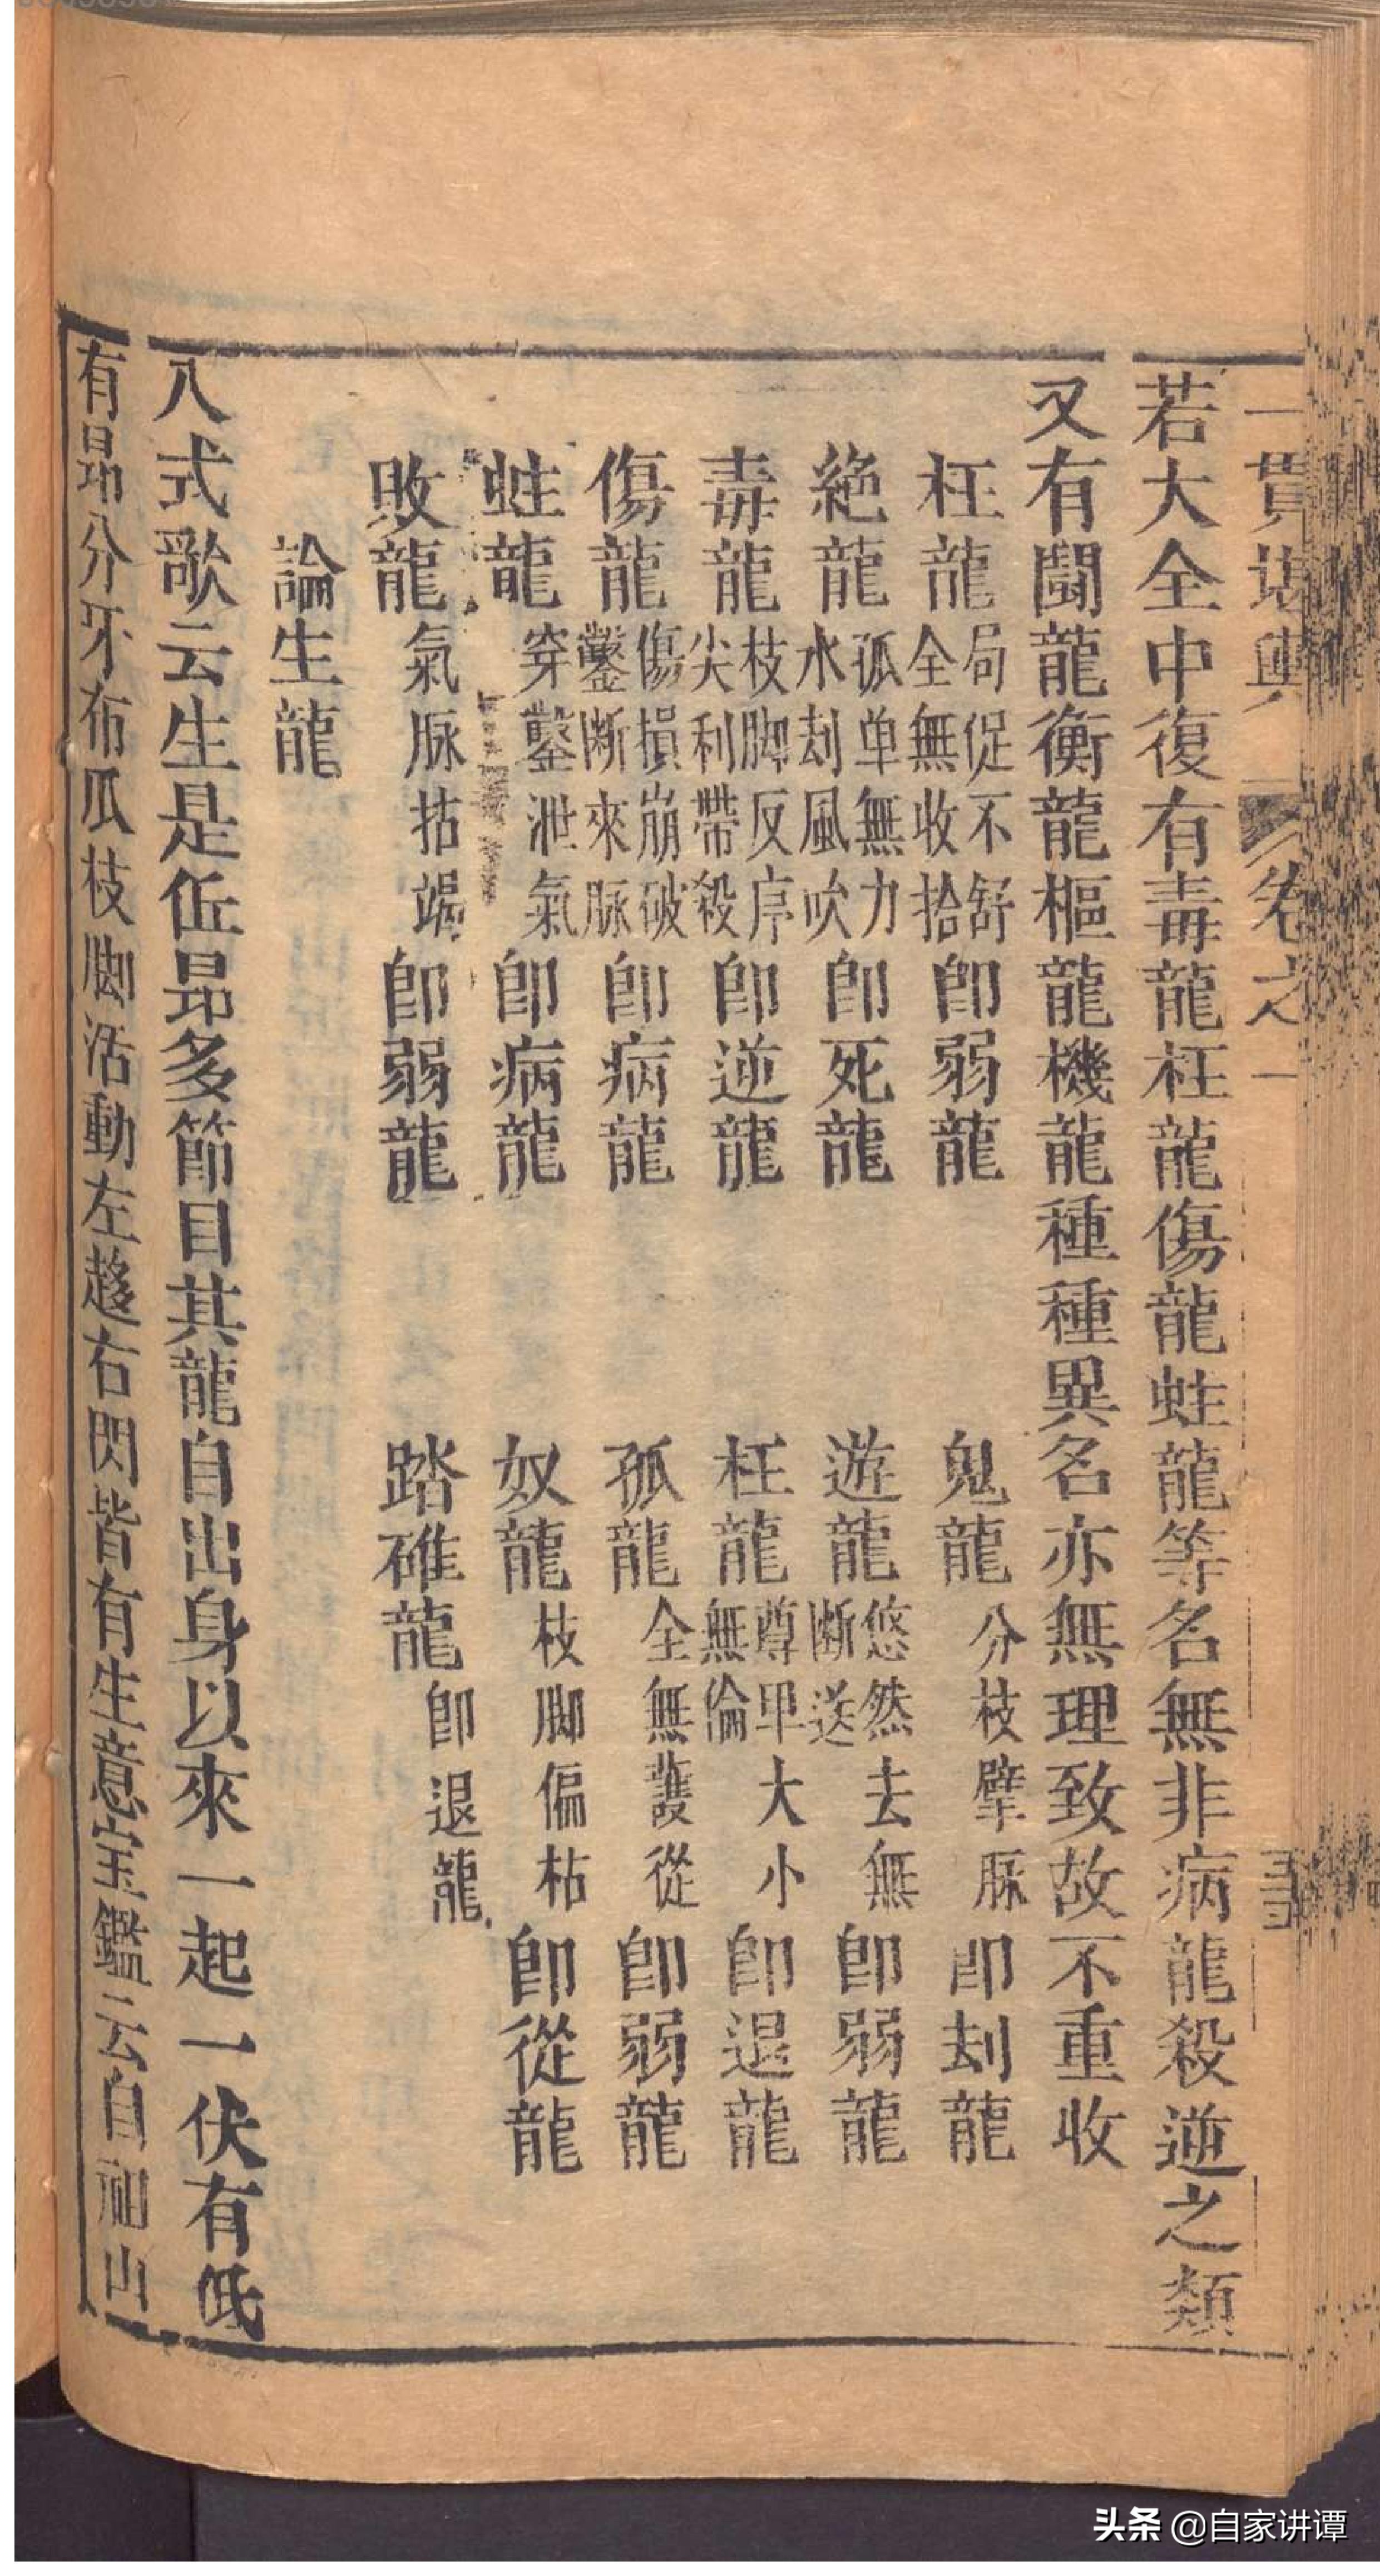 一貫堪輿 卷之一
若大全中復有毒龍枉龍傷龍蛀龍等名無非病龍殺逆之類
又有鬪龍衡龍樞龍機龍種種異名亦無理致故不重收
枉龍局促不舒全無收拾即弱龍 鬼龍分枝擘脉即刦龍
絶龍孤单無力水刦風吹即死龍 遊龍悠然去無斷送即弱龍
毒龍枝脚反序尖利帶殺即逆龍 枉龍尊卑大小無倫即退龍
傷龍傷損崩破鑿斷來脉即病龍 孤龍全無護從即弱龍
蛀龍穿鑿泄氣即病龍 奴龍枝脚偏枯即從龍
敗龍氣脉枯竭即弱龍 踏碓龍即退龍
論生龍
八式歌云生是低昂多節目其龍自出身以來一起一伏有低
有昂分牙布爪枝脚活動左趍右閃皆有生意宝鑑云自祖山
头条 @自家讲谭